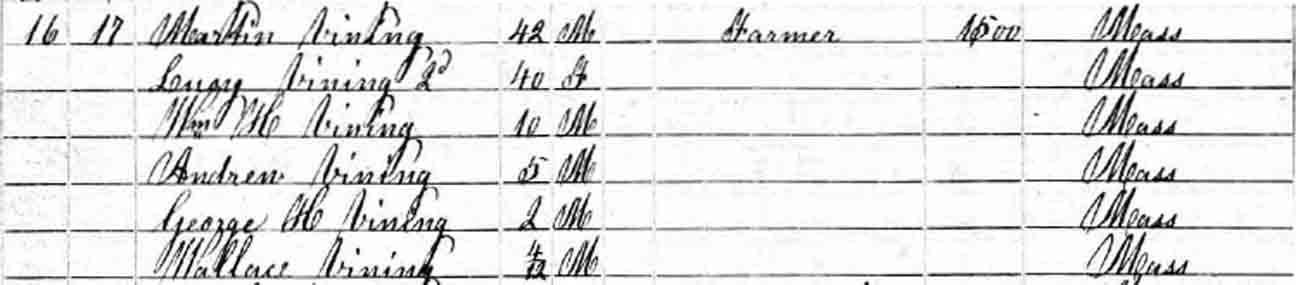 16 17 Martin Vining 42 M Farmer 1500 Mass
Lucy Vining 2d 40 F Mass
Wm H Vining 10 M Mass
Andrew Vining 5 M Mass
George H Vining 2 M Mass
Wallace Vining 4/12 M Mass